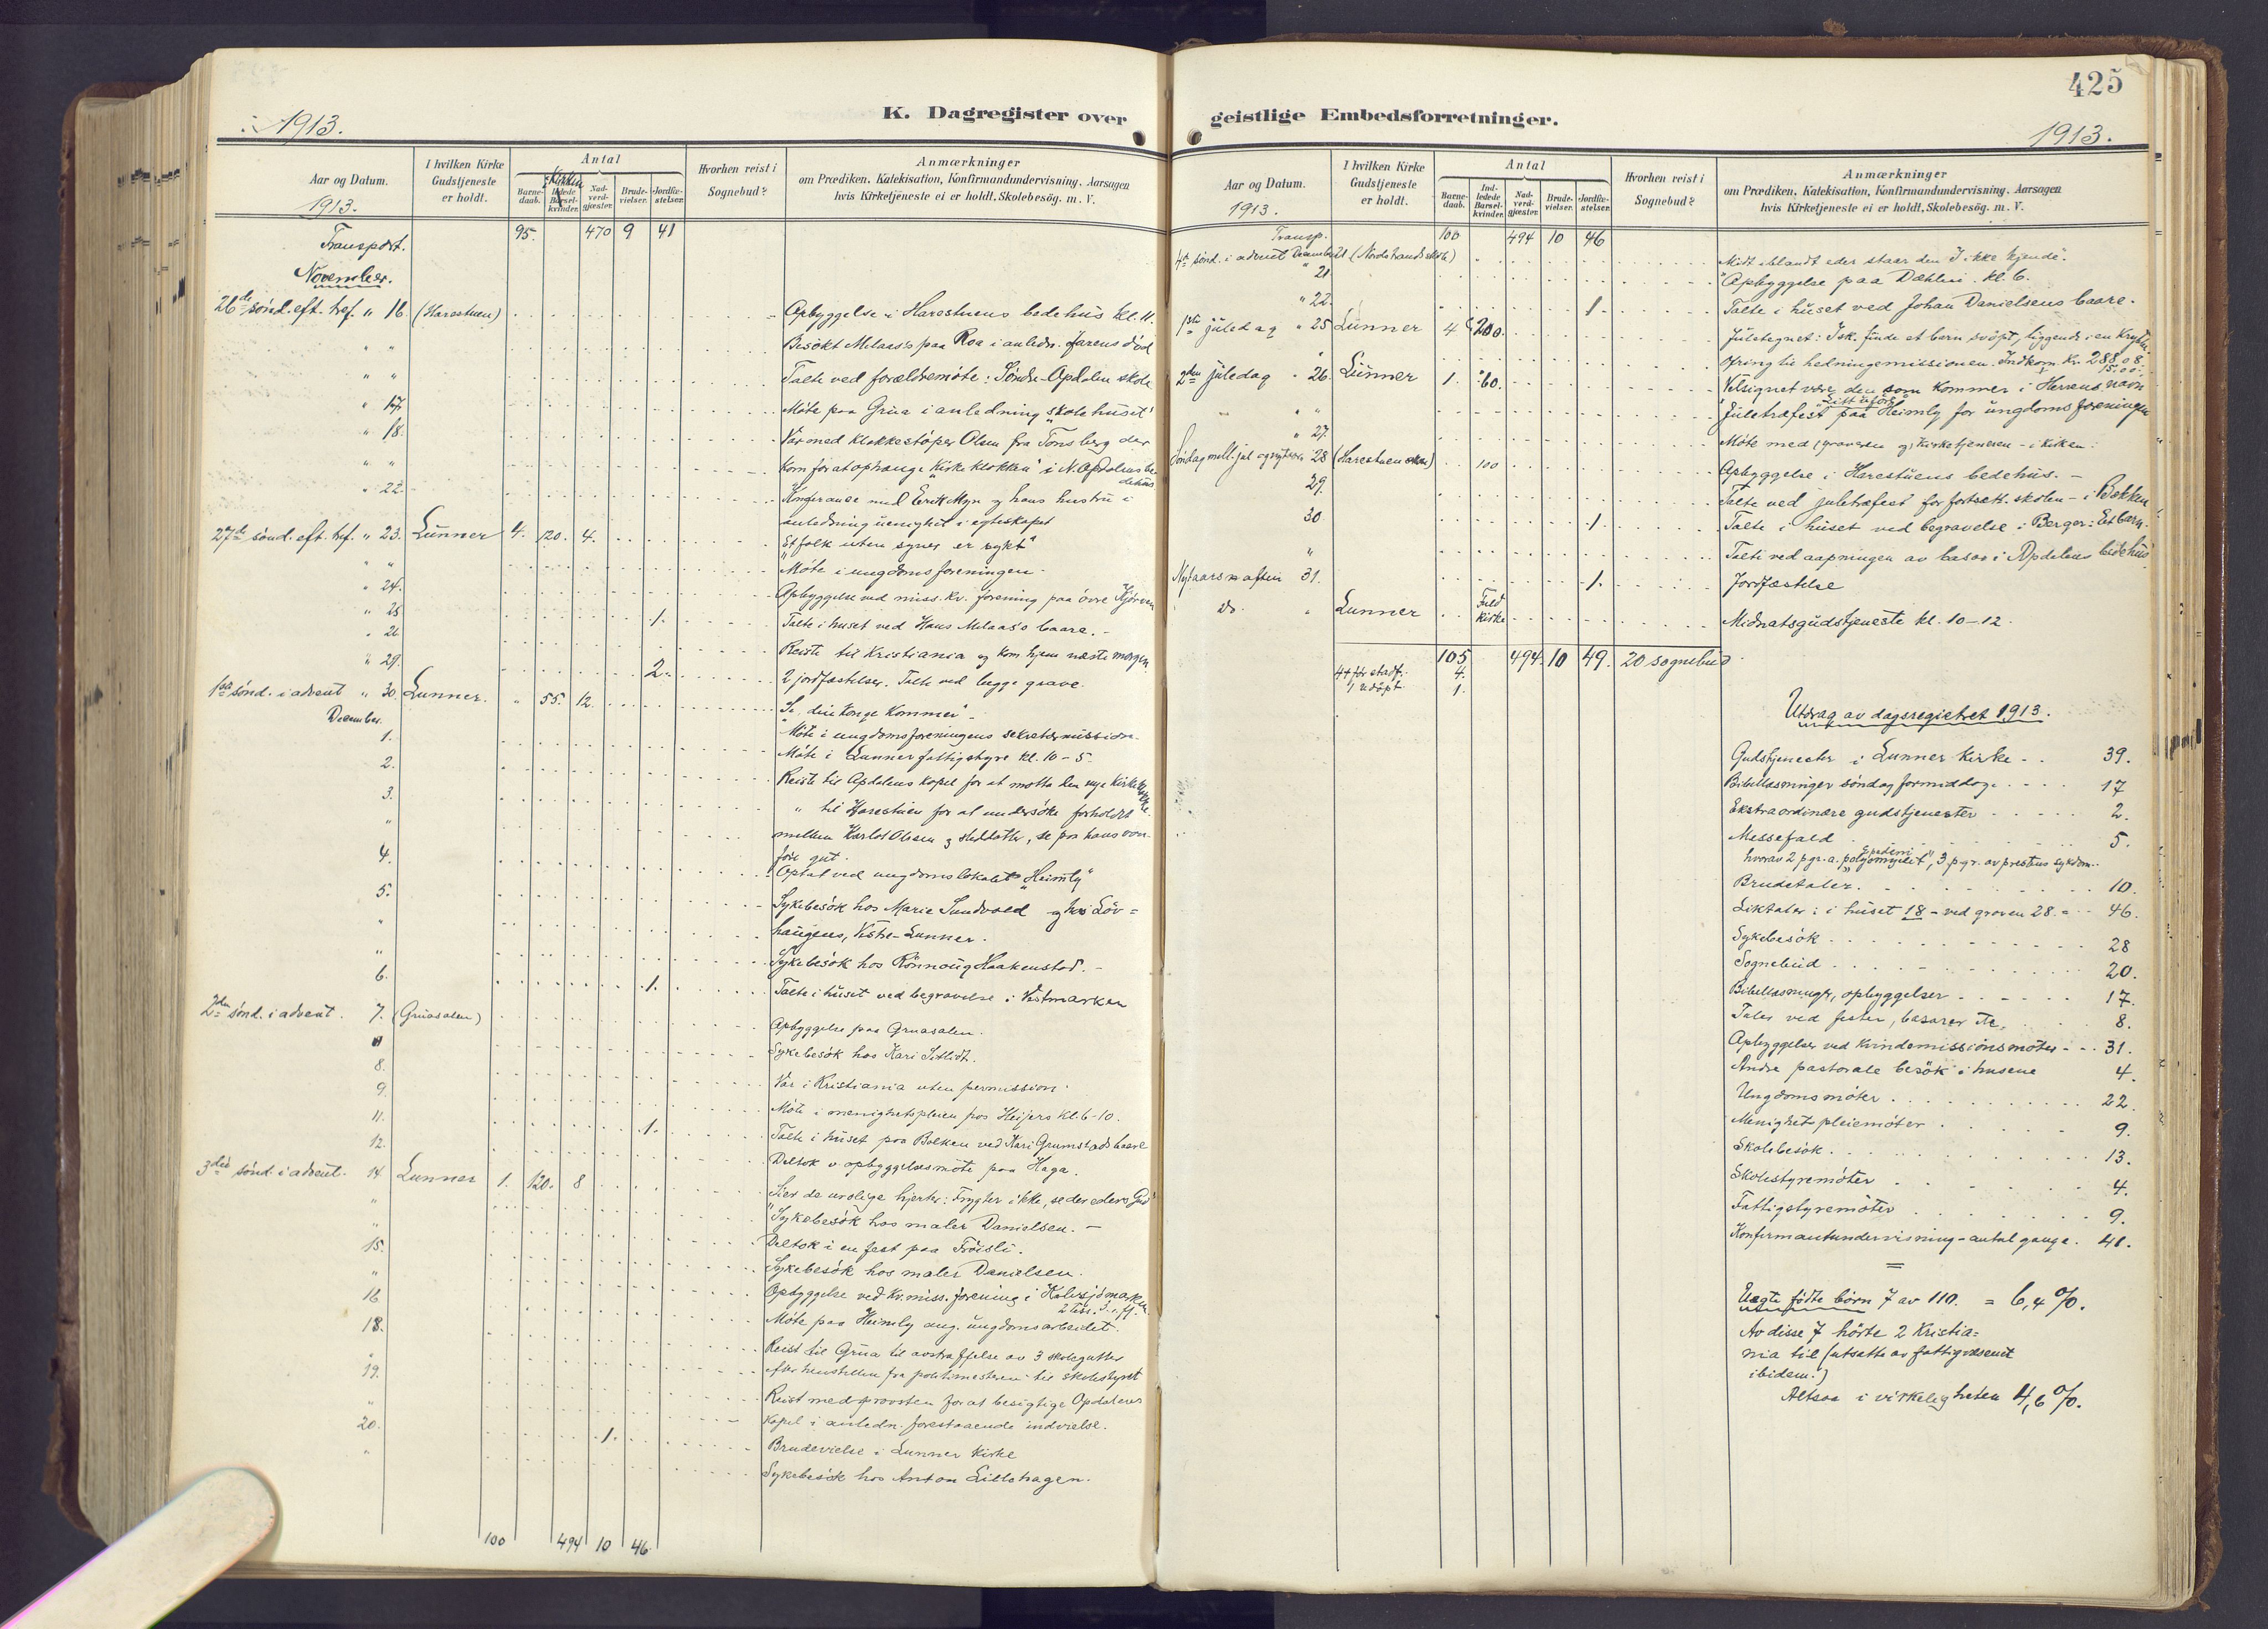 425
K. Dagregister over geistlige Embedsforretninger.
1913.
1913.
Aar og Datum.
1913.
I hvilken Kirke Gudstjeneste er holdt.
Antal
Barne-daab.
Barsel-kvinder.
Nad-verd-gjæster.
Brude-vielser.
Jordfæ-stelser.
Hvorhen reist i Sognebud?
Anmærkninger
om Prædiken, Katekisation, Konfirmandundervisning, Aarsagen
hvis Kirketjeneste ei er holdt, Skolebesøg. m. V.
Transport. 95. 470 9 41
November.
26de sønd. eft. tref. " 16. (Harestuen) Opbyggelse i Harestuens bedehus kl. 11.
" " Besøkt Melaas's paa Roa i anledn. farens død
" " Talte ved forældremøte: Søndre Opdalen skole
" 17. Møte paa Grua i anledning "skolehuset"
" 18. Var med klokkestøper Olsen fra Tønsberg der
" " kom for at ophænge "kirkeklokken" i N. Opdalens be
dehus
" 22. Konferanse med Erik Myn og hans hustru i
anledning uenighet i egteskapet
27de sønd. eft. tref. " 23. Lunner 4. 120. 4. "Et folk uten syner er sykt"
" " Møte i ungdomsforeningen.
" 24. Opbyggelse ved miss. kv. forening paa øvre Kjørven
" 25 1. Talte i huset ved Hans Melaas's baare.
" 26 Reiste til Kristiania og kom hjem næste morgen
" 29. 2. 2 jordfæstelser. Talte ved begge grave.
1ste sønd. i advent " 30. Lunner. " 55. 12. "Se, din konge kommer"
December.
Møte i ungdomsforeningens sekretærmission.
1. Møte i Lunner fattigstyre kl. 10 - 5.
2. Reiste til Opdalens kapel for at motta den nye kirkeklokke.
3. " til Harestuen for at undersøke forholdet
" mellem Karlot Olsen og steddatter, se paa hans van-
føre gut.
4. Optat ved ungdomslokalet "Heimly"
5. Sykebesøk hos Marie Sundvold og hos Løv=
haugens, Vestre-Lunner.
" Sykebesøk hos Rønnaug Haakenstad.
6. 1. Talte i huset ved begravelse i Vestmarken
2den sønd. i advent. 7. (Gruasalen) Opbyggelse paa Gruasalen.
" Sykebesøk hos Kari
8. Var i Kristiania uten permission.
9. Møte i menighetspleien hos Heijers kl. 6-10.
11. 1. Talte i huset paa Bolken ved Kari Grumstads baare
12. Deltok v. opbyggelsesmøte paa Haga.
3die sønd. i advent. 14. Lunner 1. 120. 8 "Sier de urolige hjerter: Frygter ikke, se der eders Gud"
" Sykebesøk hos maler Danielsen.
" Deltok i en fest paa Frøisli.
15. Sykebesøk hos maler Danielsen.
" Opbyggelse ved kv. miss. forening i Kalvsjømarken
16. Møte paa Heimly ang. ungdomsarbeidet.
18. Reist til Grua til avstraffelse av 3 skolegutter
" efter henstillen fra politimesteren til skolestyret
19. Reist med provsten for at besigtige Opdalens
" kapel i anledn. forestaaende indvielse.
20. 1. Brudevielse i Lunner kirke
" Sykebesøk hos Anton Lillehagen.
100 494 10 46.
Aar og Datum.
1913.
I hvilken Kirke Gudstjeneste er holdt.
Antal
Barne-daab.
Ind-ledede Barsel-kvinder.
Nad-verd-gjæster.
Brude-vielser.
Jordfæ-stelser.
Hvorhen reist i Sognebud?
Anmærkninger
om Prædiken, Katekisation, Konfirmandundervisning, Aarsagen
hvis Kirketjeneste ei er holdt, Skolebesøg. m. V.
Transp. 100 494 10 46
4de sønd. i advent December 21 (Nordstrands skole) Midt iblandt eder staar den I ikke kjende".
" 21 Opbyggelse paa Dæhlin. kl. 6.
" 22. 1. Talte i huset ved Johan Danielsens baare.
1ste juledag " 25 Lunner 4 200. Juletegnet: I sk. finde et barn svøpt, liggende i en krybbe.
Ofring til hedningemissionen. Indkom Kr. 288,08.
2den juledag " 26. Lunner 1. 60. Velsignet være den som kommer i Herrens navn
" " Juletræfest paa Heimly for ungdomsforeningen
" 27. Møte med graveren og kirketjeneren - i kirken.
Søndag mell. jul og nytaar 28 (Harestuen) 100 Opbyggelse i Harestuens bedehus.
29. Talte ved juletræfest for fortsett. skolen - i Bakken
30 1. Talte i huset ved begravelse i Berger: Et barn.
" Talte ved aapningen av basar i Opdalens bedehus
Nytaarsaften 31. 1. Jordfæstelse
do. " Lunner Fuld kirke Midnatsgudstjeneste kl. 10-12.
105 494 10 49. 20 sognebud.
4.
1 udøpt. 1.
Utdrag av dagsregistret 1913.
Gudstjenester i Lunner kirke 39.
Bibellæsninger søndag formiddag. 17
Ekstraordinære gudstjenester 2.
Messefald 5.
hvorav 2 pgr. a. epidemi, 3 pgr. av prestens sykdom.
Brudetaler. 10.
Liktaler: i huset 18 - ved graven 28. = 46.
Sykebesøk 28
Sognebud 20.
Bibellæsninger, opbyggelser 17.
Taler ved fester, basarer etc. 8.
Opbyggelser ved kvindemissionsmøter 31.
Andre pastorale besøk i husene 4.
Ungdomsmøter 22.
Menighetspleiemøter 9.
Skolebesøk. 13.
Skolestyremøter 4.
Fattigstyremøter 9.
Konfirmantundervisning - antal gange. 41.
Uægte fødte børn 7 av 110. = 6,4 %.
Av disse 7 hørte 2 Kristia=
nia til (utsatte av fattigvæsenet
ibidem.)
Altsaa i virkeligheten 4,6 %.